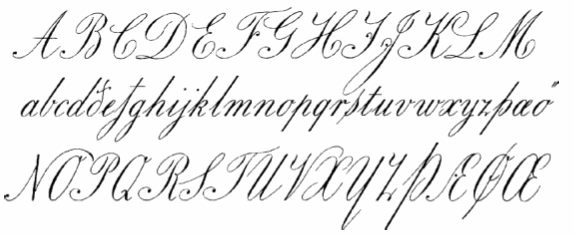 ABCDEFGHIJKLM
abcdðefghijklmnopqrstuvwxyzþæö
NOPQRSTUVXYZÞÆØŒ